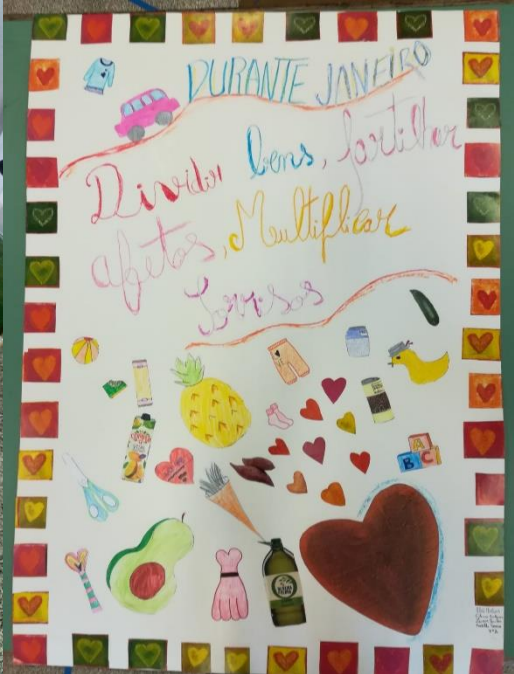 DURANTE JANEIRO
Dividir bens, partilhar
afetos, Multiplicar
Sorrisos
A
B C